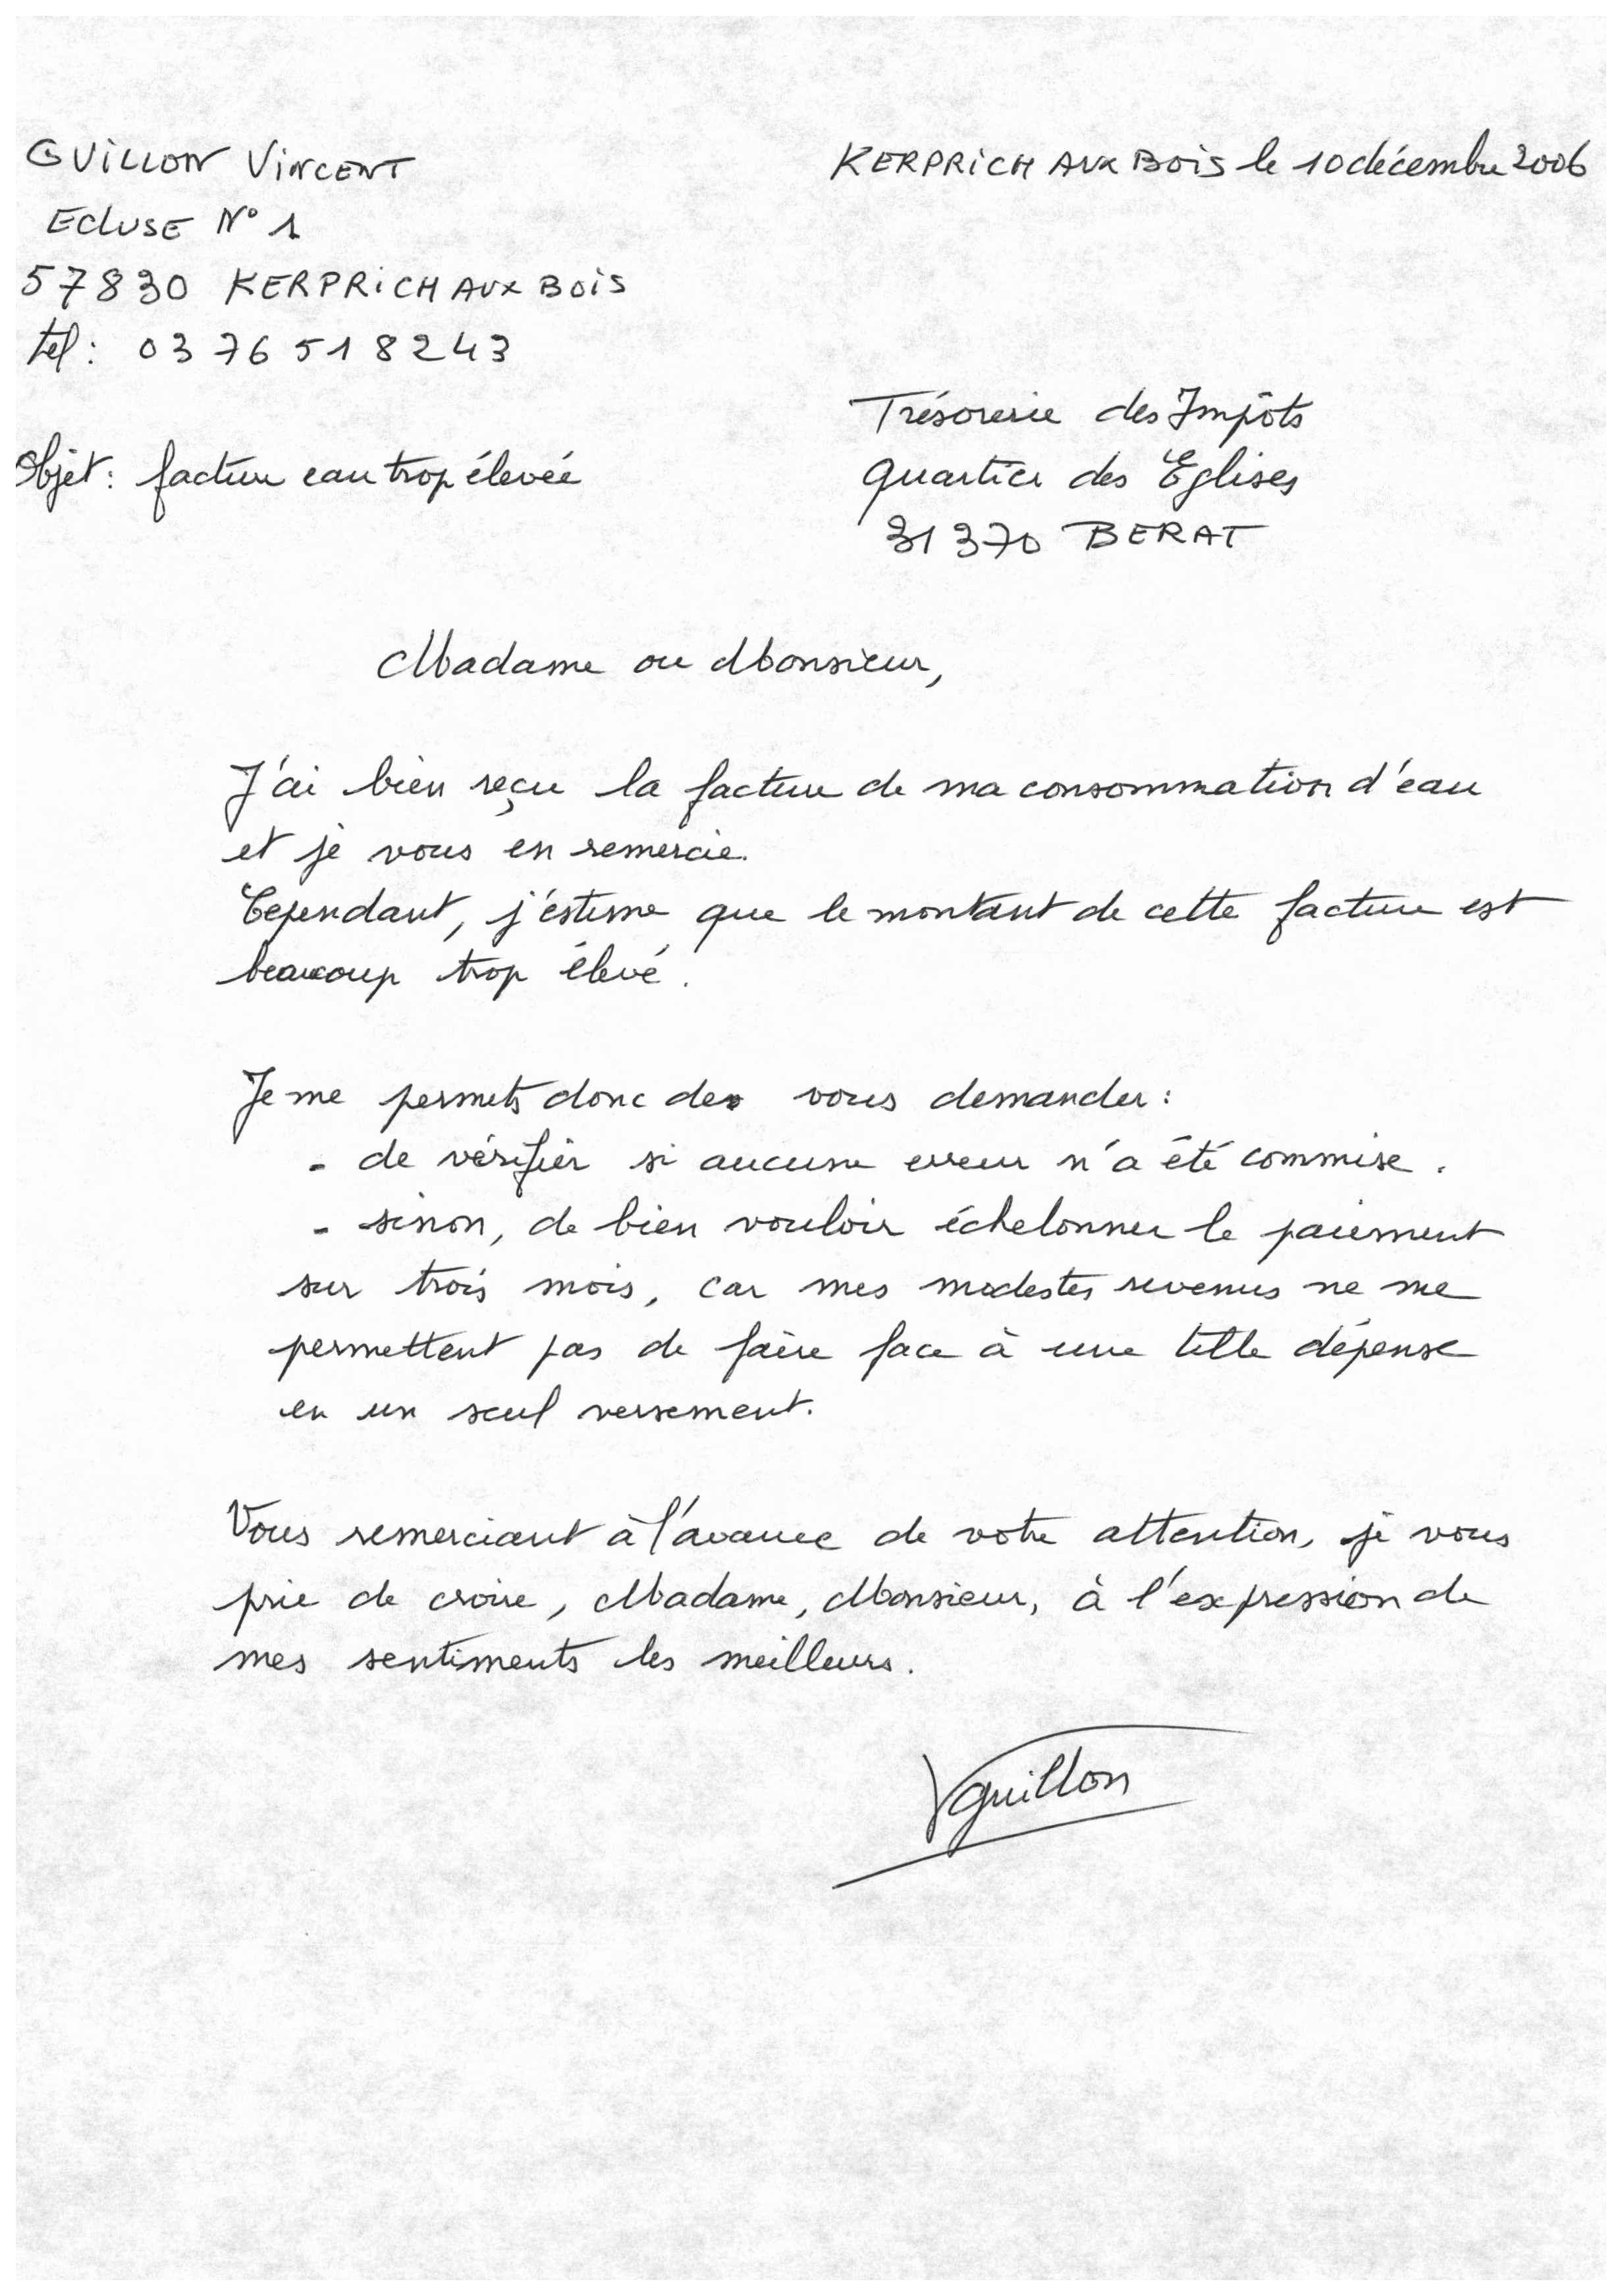 GUILLON VINCENT
KERPRICH AUX BOIS le 10 décembre 2006
ECLUSE N° 1
57830 KERPRICH AUX BOIS
tel : 03 76 51 82 43
Trésorerie des Impôts
Objet : facture eau trop élevée
Quartier des Eglises
31370 BERAT
Madame ou Monsieur,
J'ai bien reçu la facture de ma consommation d'eau
et je vous en remercie.
Cependant, j'estime que le montant de cette facture est
beaucoup trop élevé.
Je me permets donc de vous demander :
- de vérifier si aucune erreur n'a été commise.
- sinon, de bien vouloir échelonner le paiement
sur trois mois, car mes modestes revenus ne me
permettent pas de faire face à une telle dépense
en un seul versement.
Vous remerciant à l'avance de votre attention, je vous
prie de croire, Madame, Monsieur, à l'expression de
mes sentiments les meilleurs.
VGuillon